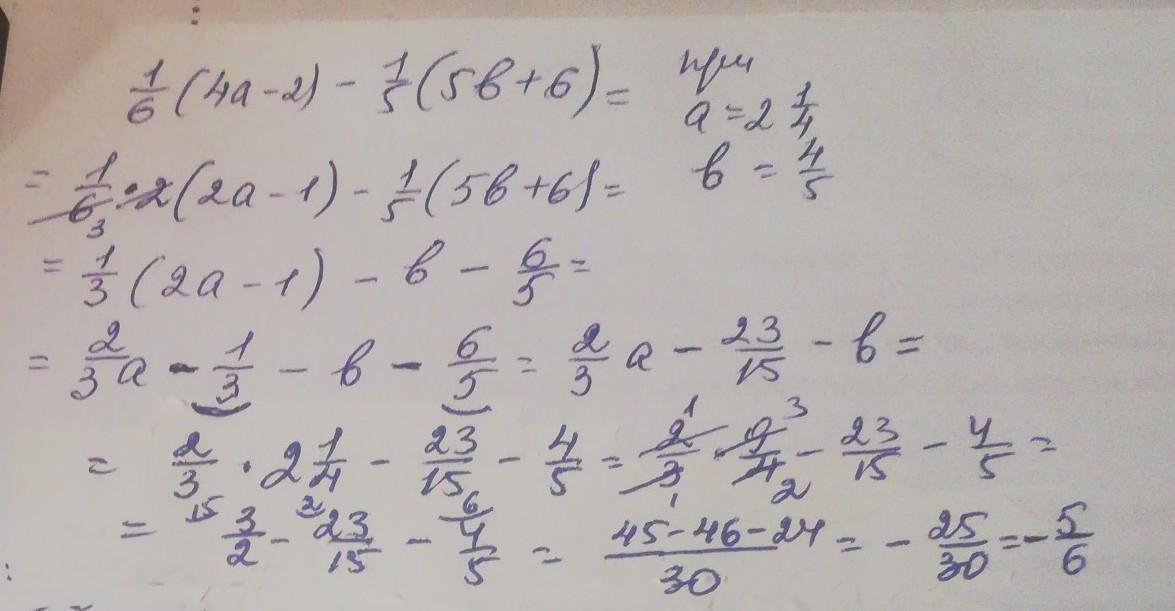 1/6 (4a-2) - 1/5 (5в+6) = при
a = 2 1/4
в = 4/5
= 1/6 · 2 (2a-1) - 1/5 (5в+6) =
3
= 1/3 (2a-1) - в - 6/5 =
= 2/3 a - 1/3 - в - 6/5 = 2/3 a - 23/15 - в =
= 2/3 · 2 1/4 - 23/15 - 4/5 = 2/3 · 9/4 - 23/15 - 4/5 =
1 3 1 2
= 3/2 - 23/15 - 4/5 = 45-46-24/30 = - 25/30 = - 5/6
15 2 6